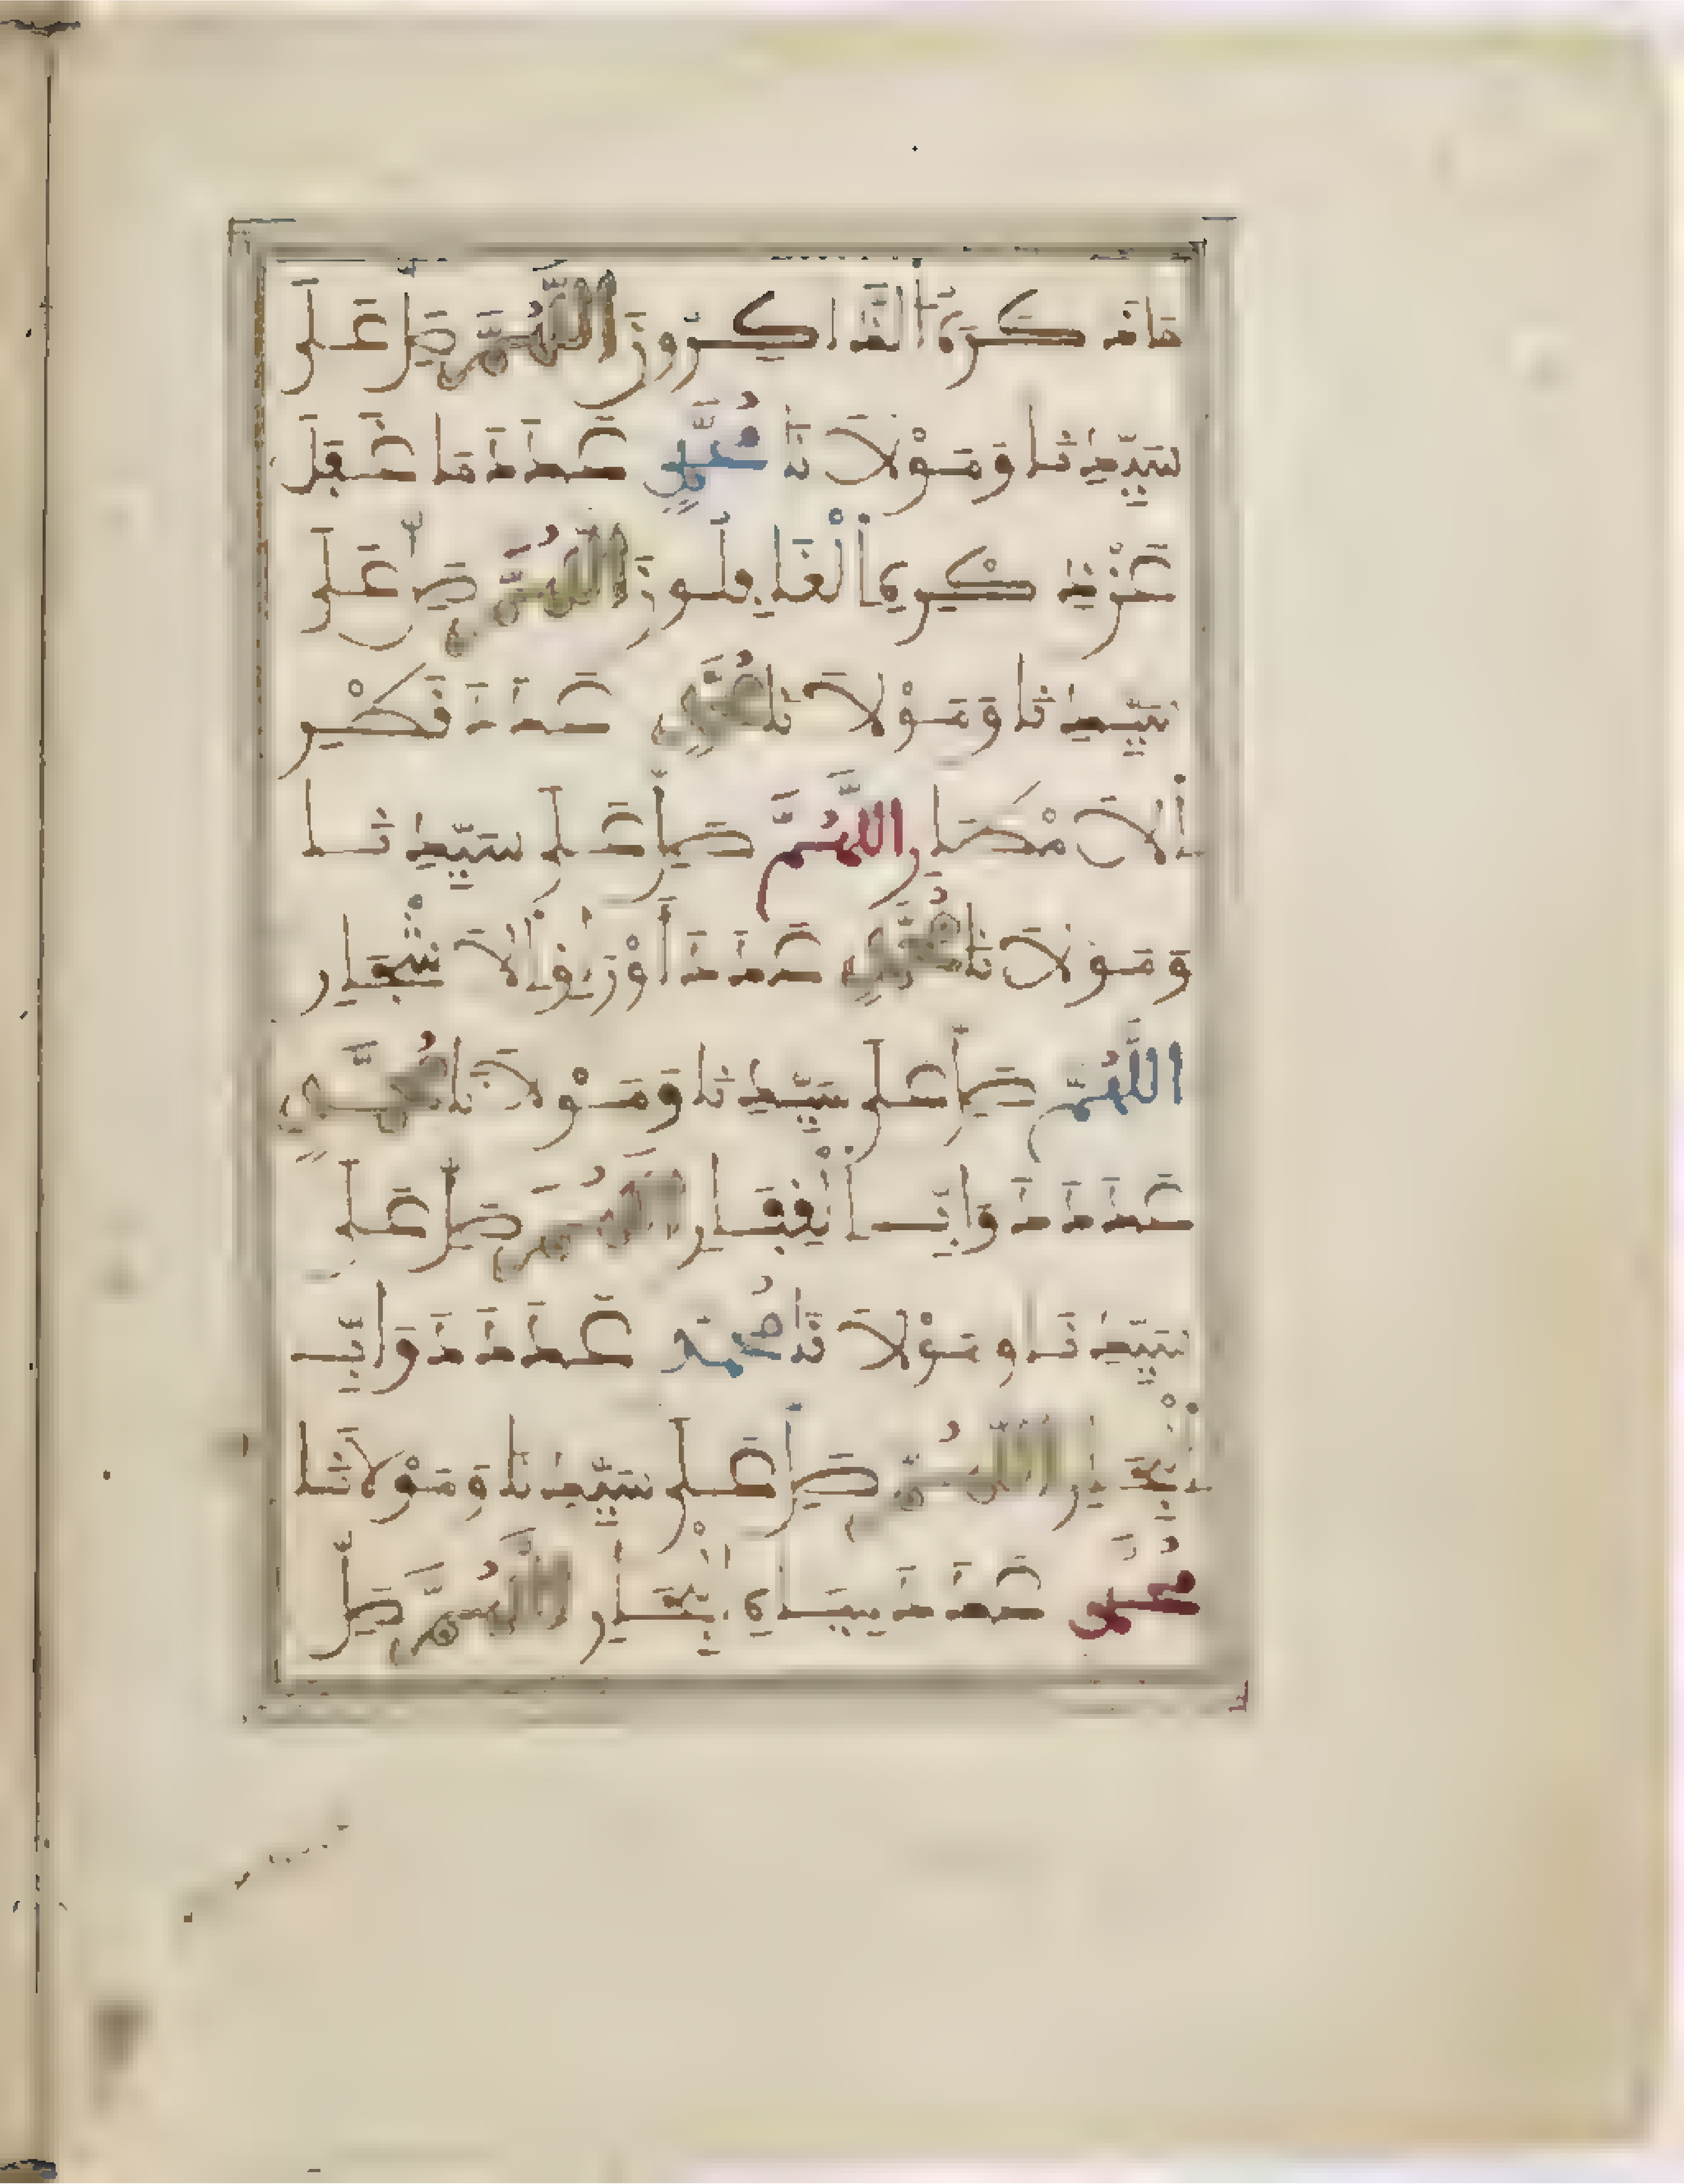 ذكره الذاكرون اللهم صل على
سيدنا ومولانا محمد عدد ما غفل
عن ذكره الغافلون اللهم صل على
سيدنا ومولانا محمد عدد قطر
الامطار اللهم صل على سيدنا
ومولانا محمد عدد أوراق الاشجار
اللهم صل على سيدنا ومولانا محمد
عدد دواب القفار اللهم صل على
سيدنا ومولانا محمد عدد دواب
البحار اللهم صل على سيدنا ومولانا
محمد عدد مياه البحار اللهم صل